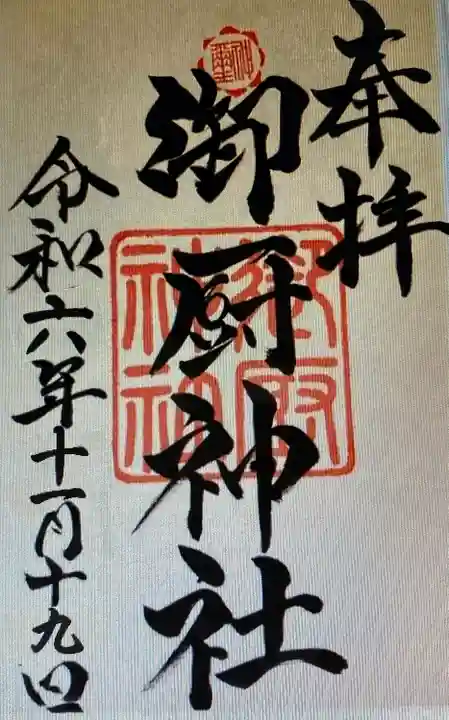 奉拝
御厨神社
御厨神社
令和六年十一月十九日